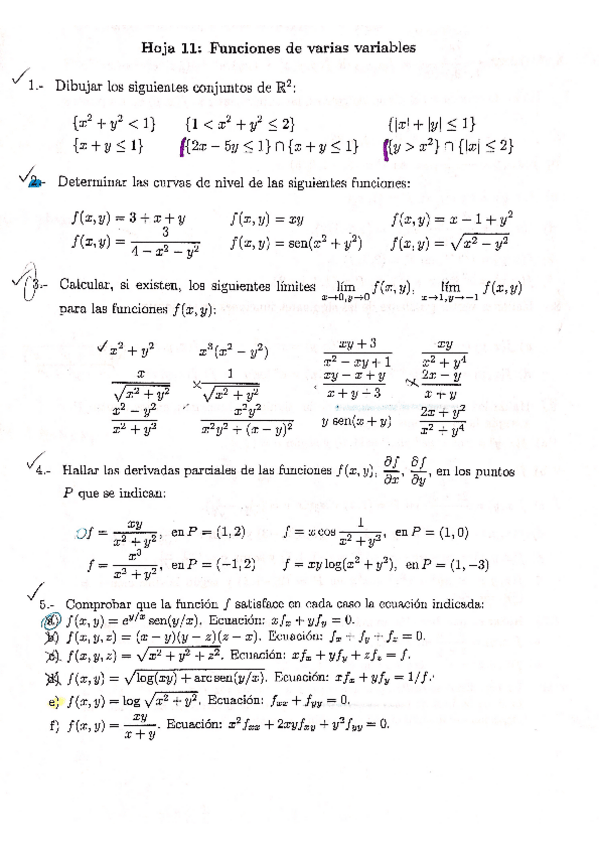 Hoja 11: Funciones de varias variables
1.- Dibujar los siguientes conjuntos de R²:
{x² + y² < 1} {1 < x² + y² ≤ 2} {|x| + |y| ≤ 1}
{x + y ≤ 1} {2x − 5y ≤ 1} ∩ {x + y ≤ 1} {y > x²} ∩ {|x| ≤ 2}
2.- Determinar las curvas de nivel de las siguientes funciones:
f(x, y) = 3 + x + y f(x, y) = xy f(x, y) = x − 1 + y²
f(x, y) = 3/(4 − x² − y²) f(x, y) = sen(x² + y²) f(x, y) = √(x² − y²)
3.- Calcular, si existen, los siguientes límites lím x→0,y→0 f(x, y), lím x→1,y→−1 f(x, y)
para las funciones f(x, y):
x² + y² x³(x² − y²) (xy + 3)/(x² − xy + 1) xy/(x² + y⁴)
x/√(x² + y²) 1/√(x² + y²) (xy − x + y)/(x + y + 3) (2x − y)/(x + y)
(x² − y²)/(x² + y²) x²y²/(x²y² + (x − y)²) y sen(x + y) (2x + y²)/(x² + y⁴)
4.- Hallar las derivadas parciales de las funciones f(x, y), ∂f/∂x, ∂f/∂y, en los puntos
P que se indican:
f = xy/(x² + y²), en P = (1, 2) f = x cos 1/(x² + y²), en P = (1, 0)
f = x³/(x² + y²), en P = (−1, 2) f = xy log(x² + y²), en P = (1, −3)
5.- Comprobar que la función f satisface en cada caso la ecuación indicada:
a) f(x, y) = e^(y/x) sen(y/x). Ecuación: xfₓ + yf_y = 0.
b) f(x, y, z) = (x − y)(y − z)(z − x). Ecuación: fₓ + f_y + f_z = 0.
c) f(x, y, z) = √(x² + y² + z²). Ecuación: xfₓ + yf_y + zf_z = f.
d) f(x, y) = √(log(xy) + arc sen(y/x)). Ecuación: xfₓ + yf_y = 1/f.
e) f(x, y) = log √(x² + y²). Ecuación: fₓₓ + f_yy = 0.
f) f(x, y) = xy/(x + y). Ecuación: x²fₓₓ + 2xyf_xy + y²f_yy = 0.